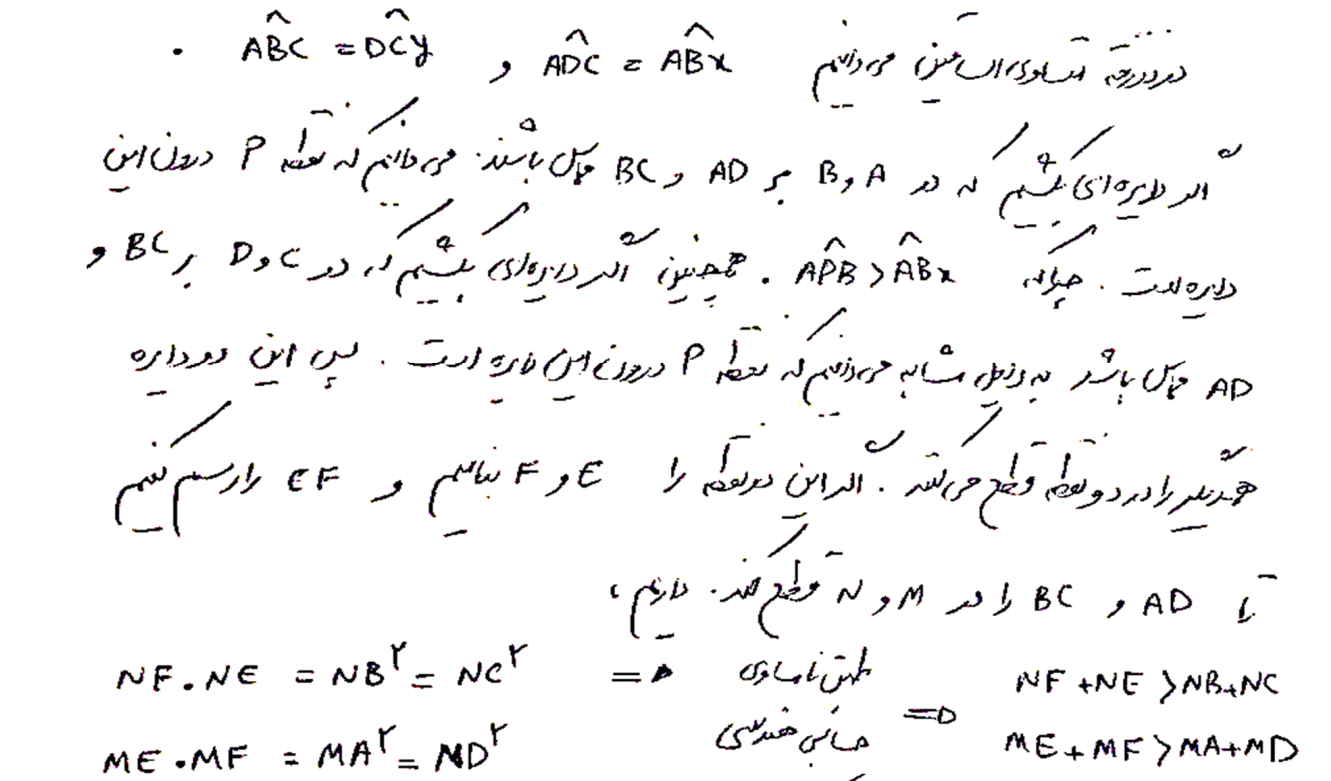 در ذوزنقه متساوی الساقین می دانیم ADC = ABx و ABC = DCy .
اگر دایره ای بکشیم که در A و B بر AD و BC مماس باشند. می دانیم که نقطه P درون این
دایره است. چرا که APB > ABx . همچنین اگر دایره ای بکشیم که در C و D بر BC و
AD مماس باشد به دلیل مشابه می دانیم که نقطه P درون این دایره است. پس این دو دایره
همدیگر را در دو نقطه قطع می کنند. اگر این دو نقطه را E و F بنامیم و EF را رسم کنیم
تا AD و BC را در M و N قطع کند. داریم:
NF.NE = NB² = NC² => طبق نامساوی => NF+NE > NB+NC
ME.MF = MA² = MD² حسابی هندسی ME+MF > MA+MD